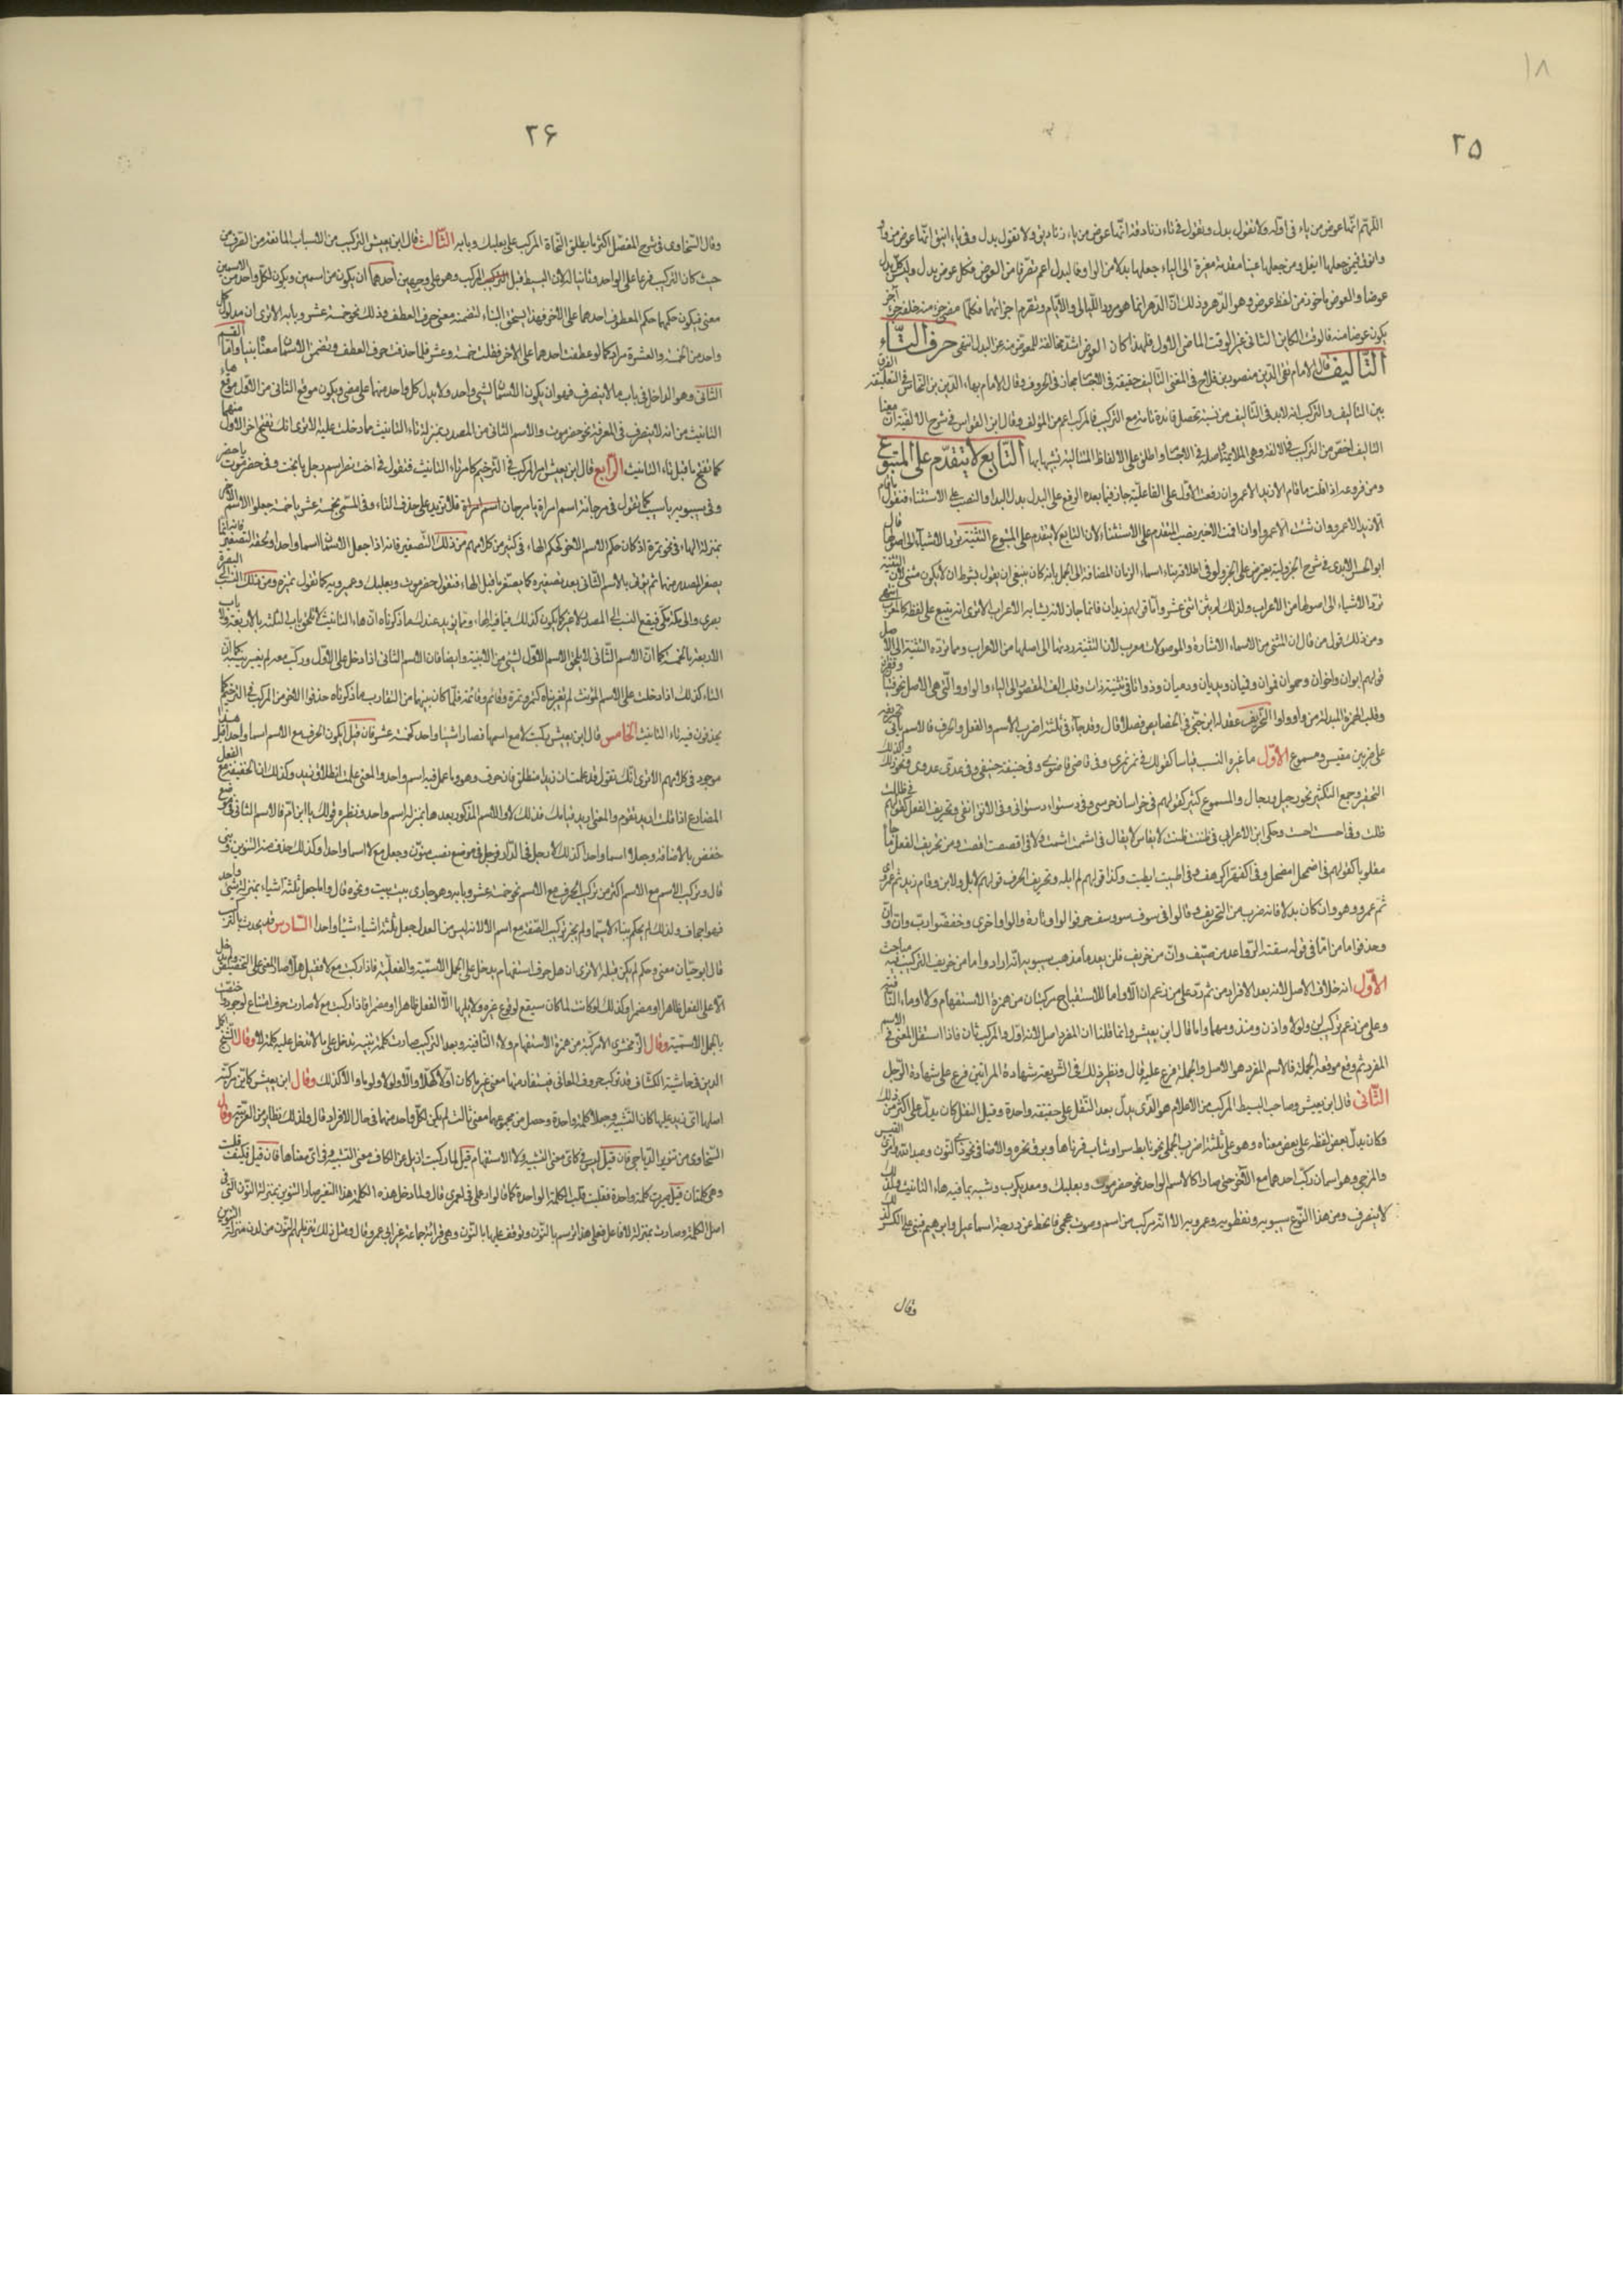 ١٨
٢٥
اللهم انما عوض من ياء في اوله ولا تقول بدل وتقول في تاء زنادقة انها عوض من ياء زناديق ولا تقول بدل وفي ياء اينق انها عوض من واو
وانوق فيمن جعلها ايفل ومن جعلها عينا مقدمة مغيرة الى الياء جعلها بدلا من الواو فالبدل اعم تصرفا من العوض فكل عوض بدل وليس كل بدل
عوضا والعوض ماخوذ من لفظ عوض وهو الدهر وذلك ان الدهر انما هو مرور الليالي والايام وتصرم اجزائهما فكلما مضى جزء منه خلفه جزء آخر
يكون عوضا منه فالوقت الكاين الثاني غير الوقت الماضي الاول فلهذا كان العوض اشد مخالفة للمعوض منه من البدل انتهى حرف التاء
التأليف قال الامام تقي الدين منصور بن فلاح في المغني التأليف حقيقة في الاجسام مجاز في الحروف وقال الامام بهاء الدين بن النحاس في التعليقة الفرق
بين التأليف والتركيب انه لابد في التأليف من نسبة تحصل فائدة تامة مع التركيب فالمركب اعم من المؤلف وقال ابن القواس في شرح الالفية ان معنا
التأليف اخص من التركيب في الالفة وهي الملايمة واصله في الاجسام واطلق على الالفاظ المتتالية تشبيها بها التابع لا يتقدم على المتبوع
ومن فروعه اذا قلت ما قام الا زيد الا عمرو ان رفعت الاول على الفاعلية جاز فيما بعده الرفع على البدل بدل البدا والنصب على الاستثناء فتقول ما قام
الا زيد الا عمرو وان شئت الا عمروا وان اقمت الاخير نصب المتقدم على الاستثناء لان التابع لا يتقدم على المتبوع التثنية ترد الاشياء الى اصولها قال
ابو الحسن الابدي في شرح الجزولية يعترض على الجزولي في اطلاقه بناء اسماء الزمان المضافة الى الجمل بانه كان ينبغي ان يقول بشرط ان لا يكون مثنى لان التثنية
ترد الاشياء الى اصولها من الاعراب ولذلك لم يبن اثنى عشر واما قولهم زيدان فانما جاز لانه يشابه الاعراب الا ترى انه يتبع على لفظه كالمعرب انتهى
ومن ذلك قول من قال ان المثنى من الاسماء الاشارة والموصولات معرب لان التثنية ردتها الى اصلها من الاعراب ومما تردّه التثنية الى الاصل
قولهم ابوان واخوان وحموان فموان وفميان ويديان ودميان وذواتا في تثنية ذات وقلب الف المقصور الى الياء والواو والتي هي الاصل نحو فتيان وقفوان
وقلب الهمزة المبدلة من واو واوا التحريف عقد له ابن جني في الخصايص فصلا قال وقد جاء في ثلاثة اضرب الاسم والفعل والحرف فالاسم يأتي تحريفه
على ضربين مقيس ومسموع الاول ما غيره النسب قياسا كقولك في نمر نمري وفي قاضي قاضوي وفي حنيفة حنيفي وفي عدي عدوي ونحو ذلك وكذلك
التحقير وجمع التكثير نحو رجيل ورجال والمسموع كثير كقولهم في خراسان خرسي وفي دستواء دستواني وفي الافق افقي وتحريف الفعل كقولهم في ظللت
ظلت وفي احسست احست وحكى ابن الاعرابي في ظننت ظنت لا يقاس لا يقال في اشممت اشمت ولا في اقصصت اقصت ومن تحريف الفعل ما جاء
مقلوبا كقولهم في اضمحل امضحل وفي اكفهر اكرهف وفي اطيب ايطب وكذا قولهم لم ابله وتحريف الحرف قولهم لا بل ولا بن وقام زيد ثم عمرو اي
ثم عمرو وهو وان كان بدلا فانه ضرب من التحريف وقالوا في سوف سو وسف حرفوا الواو تارة والواو اخرى وخففوا رب وان وان
وحذفوا ما من اما في قوله سقته الرواعد من صيف وان من خريف فلن يعدما مذهب سيبويه انه اراد واما من خريف التركيب فيه مباحث
الاول انه خلاف الاصل لانه بعد الافراد من ثم ردّ على من زعم ان الا واما للاستفتاح مركبتان من همزة الاستفهام ولا وما النافية
وعلى من زعم تركيب لن ولولا واذن ومنذ ومهما واما قال ابن يعيش وانما قلنا ان المفرد اصل لانه اول والمركب ثان فاذا استقل المعنى في الاسم
المفرد ثم وقع موقعه الجملة فالاسم المفرد هو الاصل والجملة فرع عليه قال ونظير ذلك في الشريعة شهادة المراتين فرع على شهادة الرجل
الثاني قال ابن يعيش وصاحب البسيط المركب من الاعلام هو الذي يدل بعد النقل على حقيقة واحدة وقبل النقل كان يدل على اكثر من ذلك
وكان يدل بعض لفظه على بعض معناه وهو على ثلاثة اضرب الجملي نحو تابط شرا وشاب قرناها وبرق نحره والاضافي نحو ذي النون وعبد الله وامرئ القيس
والمزجي وهو اسمان ركب احدهما مع الآخر حتى صارا كالاسم الواحد نحو حضرموت وبعلبك ومعديكرب وشبه بما فيه هاء التانيث ولذلك
لا ينصرف ومن هذا النوع سيبويه ونفطويه وعمرويه الا انه مركب من اسم وصوت عجمي فانحط عن درجة اسماعيل وابراهيم فبني على الكسر لذلك
وقال
٢۶
وقال السخاوي في شرح المفصل اكثر ما يطلق النحاة المركب على بعلبك وبابه الثالث قال ابن يعيش التركيب من الاسباب المانعة من الصرف من
حيث كان التركيب فرعا على الواحد وثانيا له لان البسيط قبل المركب وهو على وجهين احدهما ان يكون من اسمين ويكون لكل واحد من الاسمين
معنى فيكون حكمهما حكم المعطوف احدهما على الاخر فهذا يستحق البناء لتضمنه معنى حرف العطف وذلك نحو خمسة عشر وبابه الا ترى ان مدلول كل
واحد من الخمسة والعشرة مراد كما لو عطفت احدهما على الاخر فقلت خمسة وعشر فلما حذفت حرف العطف وتضمن الاسمان معناه بنيا واما القسم
الثاني وهو الداخل في باب ما لا ينصرف فهو ان يكون الاسمان لشيء واحد ولا يدل كل واحد منهما على معنى ويكون موقع الثاني من الاول موقع هاء
التانيث من انه لا ينصرف في المعرفة نحو حضرموت والاسم الثاني من الصدر بمنزلة تاء التانيث ما دخلت عليه الا ترى انك تفتح اخر الاول منهما
كما تفتح ما قبل تاء التانيث الرابع قال ابن يعيش امر المركب في الترخيم كامر تاء التانيث فتقول في بخت نصر اسم رجل يا بخت وفي حضرموت يا حضر
وفي سيبويه يا سيب كما تقول في مرجانة اسم امراة يا مرجان فلا تزيد على حذف التاء وفي المسمى بخمسة عشر يا خمسة جعلوا الاسم الآخر
بمنزلة الهاء في نحو تمرة اذ كان حكم الاسم الآخر كحكم الهاء في كثير من كلامهم من ذلك التصغير فانه اذا جعل الاسمان اسما واحدا ولحقه التصغير فانه انما
يصغر الصدر منهما ثم يؤتى بالاسم الثاني بعد تصغيره كما يصغر ما قبل الهاء فتقول حضيرموت وبعيلبك وعميرويه كما تقول تميرة ومن ذلك النسب الى البصرة
بصري والى مكة مكي فيقع النسب الى الصدر لا غير كما يكون كذلك فيما فيه الهاء ومما يؤيد عندك ما ذكرناه ان هاء التانيث لا تلحق بنات الثلثة بالاربعة ولا بنات
الاربعة بالخمسة كما ان الاسم الثاني لا يلحق الاسم الاول لشيء من الابنية وايضا فان الاسم الثاني اذا دخل على الاول وركب معه لم يغير بنيته كما ان
التاء كذلك اذا دخلت على الاسم المؤنث لم تغير بناه كتمرة وقائم وقائمة فلما كان بينهما من التقارب ما ذكرناه حذفوا الآخر من المركب في الترخيم كما
يحذفون فيه تاء التانيث الخامس قال ابن يعيش ركبت لا مع اسمها فصارا شيئا واحد كخمسة عشر فان قيل ايكون الحرف مع الاسم اسما واحدا قيل هذا
موجود في كلامهم الا ترى انك تقول قد علمت ان زيدا منطلق فان حرف وهو وما عمل فيه اسم واحد والمعنى علمت انطلاق زيد وكذلك ان الخفيفة مع الفعل
المضارع اذا قلت اريد ان تقوم والمعنى اريد قيامك فكذلك لا والاسم المذكور بعدها بمنزلة اسم واحد ونظيره قولك يا ابن ام فالاسم الثاني في موضع
خفض بالاضافة وجعلا اسما واحدا كذلك لا رجل في الدار فرجل في موضع نصب منون وجعل مع لا اسما واحدا وكذلك حذف منه التنوين وبني
قال وتركيب الاسم مع الاسم اكثر من تركيب الحرف مع الاسم نحو خمسة عشر وبابه وهو جاري بيت بيت ونحوه قال والمجعل ثلاثة اشياء بمنزلة شيء واحد
فهو اجحاف ولذلك لم يحكم ببناء لا سيما ولم يجز تركيب الصفة مع اسم لا لانه ليس من العدل جعل ثلاثة اشياء شيئا واحدا السادس قد يحدث بالتركيب
قال ابو حيان معنى وحكم لم يكن قبله الا ترى ان هل حرف استفهام يدخل على الجمل الاسمية والفعلية فاذا ركبت مع لا فقيل هلا صار المعنى على التحضيض ولم يدخل
الا على الفعل ظاهرا او مضمرا وكذلك لو كانت لما كان سيقع لوقوع غيره ولا يليها الا الفعل ظاهرا او مضمرا فاذا ركبت مع لا صارت حرف امتناع لوجود خصت
بالجمل الاسمية وقال الزمخشري الا مركبة من همزة الاستفهام ولا النافية وبعد التركيب صارت كلمة تنبيه تدخل على ما لا تدخل عليه كلمة لا وقال الشيخ اكمل
الدين في حاشية الكشاف قد تركب حروف المعاني فيستفاد منها معنى غير ما كان اولا كهلا والا ولولا ولو ما والا كذلك وقال ابن يعيش كاين مركبة
اصلها اي زيد عليها كاف التشبيه وجعلا كلمة واحدة وحصل من مجموعهما معنى ثالث لم يكن لكل واحد منهما في حال الافراد قال ولذلك نظاير من العربية وقال
السخاوي من تنوير الدياجي فان قيل ليس في كاي معنى التشبيه ولا الاستفهام قيل لما ركبت ازيل عن الكاف معنى التشبيه وفي اي معناها فان قيل فكيف قلبت
وهي كلمتان قيل صيرت كلمة واحدة فقلبت قلب الكلمة الواحدة كما قالوا رعملي في لعمري قال ولما دخل هذه الكلمة هذا التغير صار التنوين بمنزلة النون التي في
اصل الكلمة وصارت بمنزلة لام فاعل فعلى هذا ترسم بالنون وتوقف عليها بالنون وهي قرائة جماعة غير ابي عمرو قال ومثل ذلك تنزيلهم النون من لدن منزلة التنوين